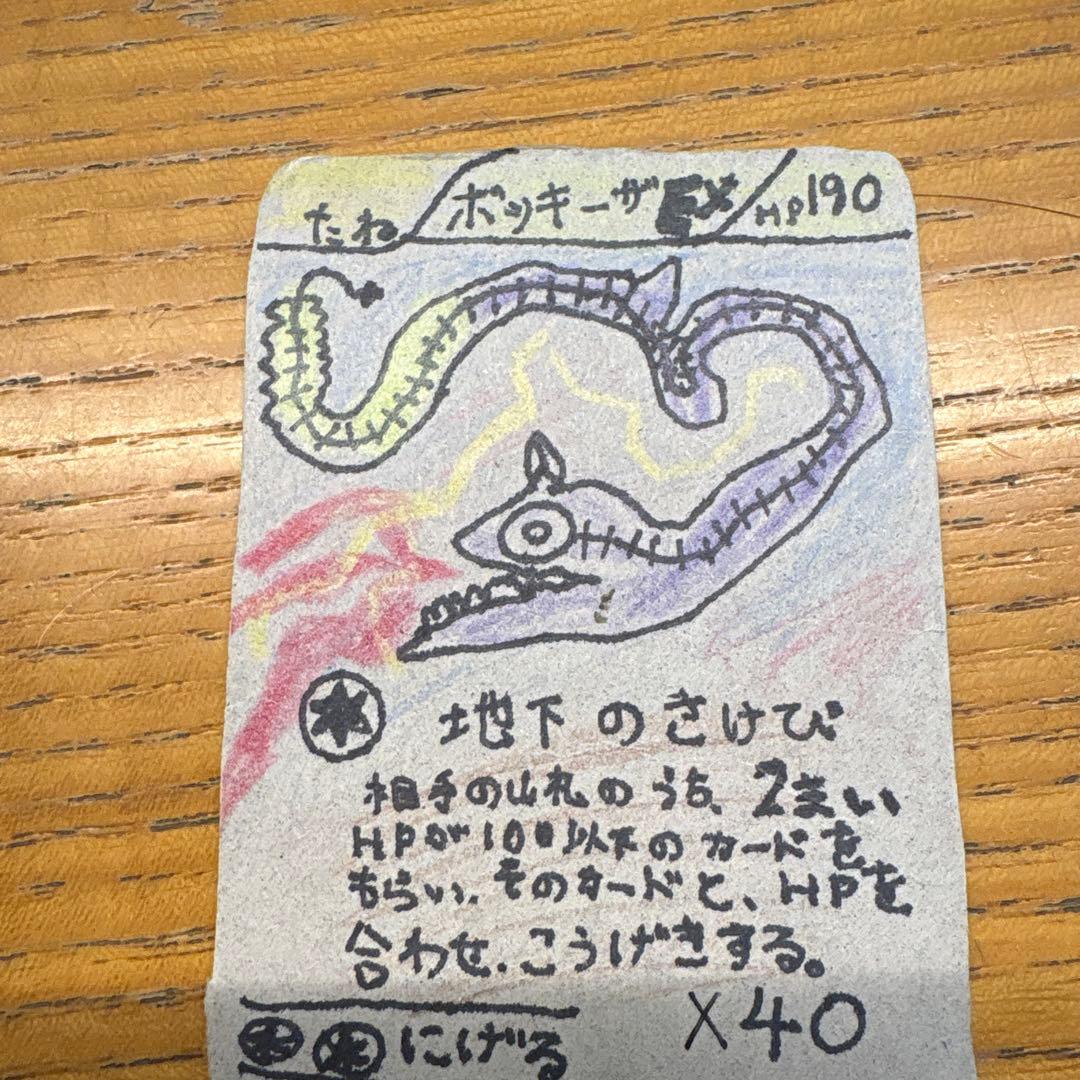 たね ボッキーザEX HP190
地下のさけび
相手の山札のうち、2まい
HPが100以下のカードを
もらい、そのカードと、HPを
合わせ、こうげきする。
×40
にげる